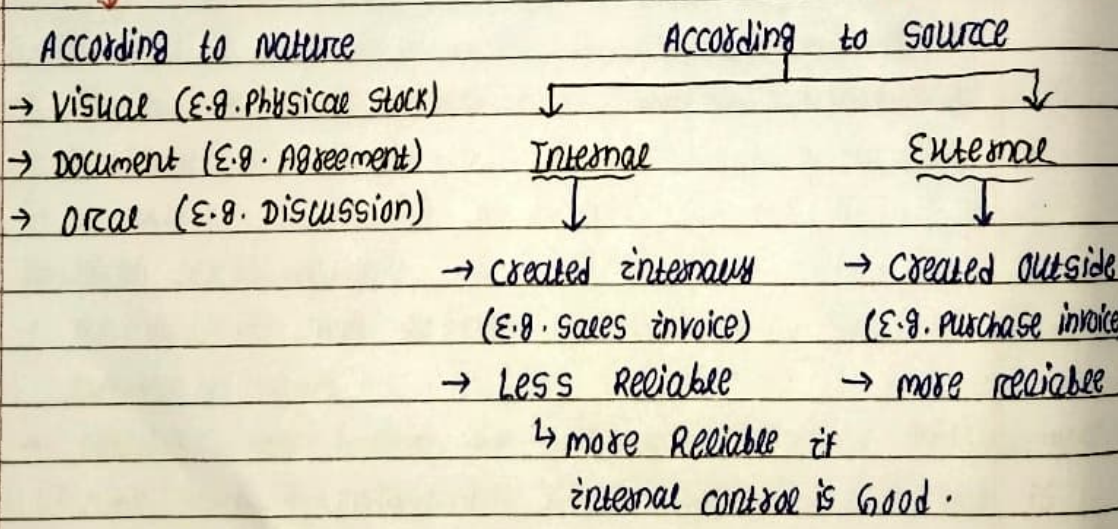 According to Nature
According to source
→ Visual (E.g. Physical Stock)
→ Document (E.g. Agreement)
→ Oral (E.g. Discussion)
Internal
External
→ created internally
(E.g. sales invoice)
→ Less Reliable
↳ more Reliable if
internal control is Good.
→ Created outside
(E.g. purchase invoice
→ more reliable